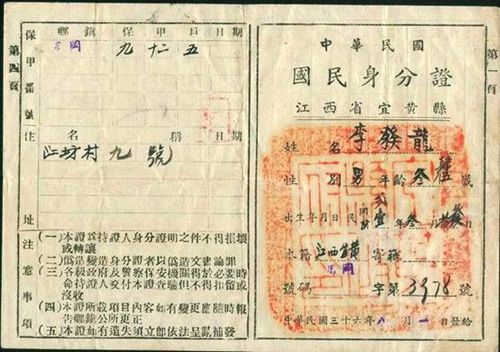 第一頁
中華民國
國民身分證
江西省宜黃縣
姓名 李發龍
性別 男 年齡 叁 歲
出生年月日 民國 年 叁月
本籍 江西宜黃 寄籍
號碼 字第 3978 號
中華民國三十六年八月一日發給
第四頁
保甲番號
鄉鎮 保 甲 戶 日期
九 十二 五
住址
名稱 日期
江坊村 九號
注意事項
(一)本證爲持證人身分證明之件不得損壞
或轉讓
(二)僞造變造身分證者以僞造文書論罪
(三)各級政府及警察保安機關得於必要時
命持證人交付本證查驗但不得扣留或
沒收
(四)本證所載項目內容如有變更應隨時報
告鄉鎮公所更正
(五)本證如有遺失須立卽依法呈請補發